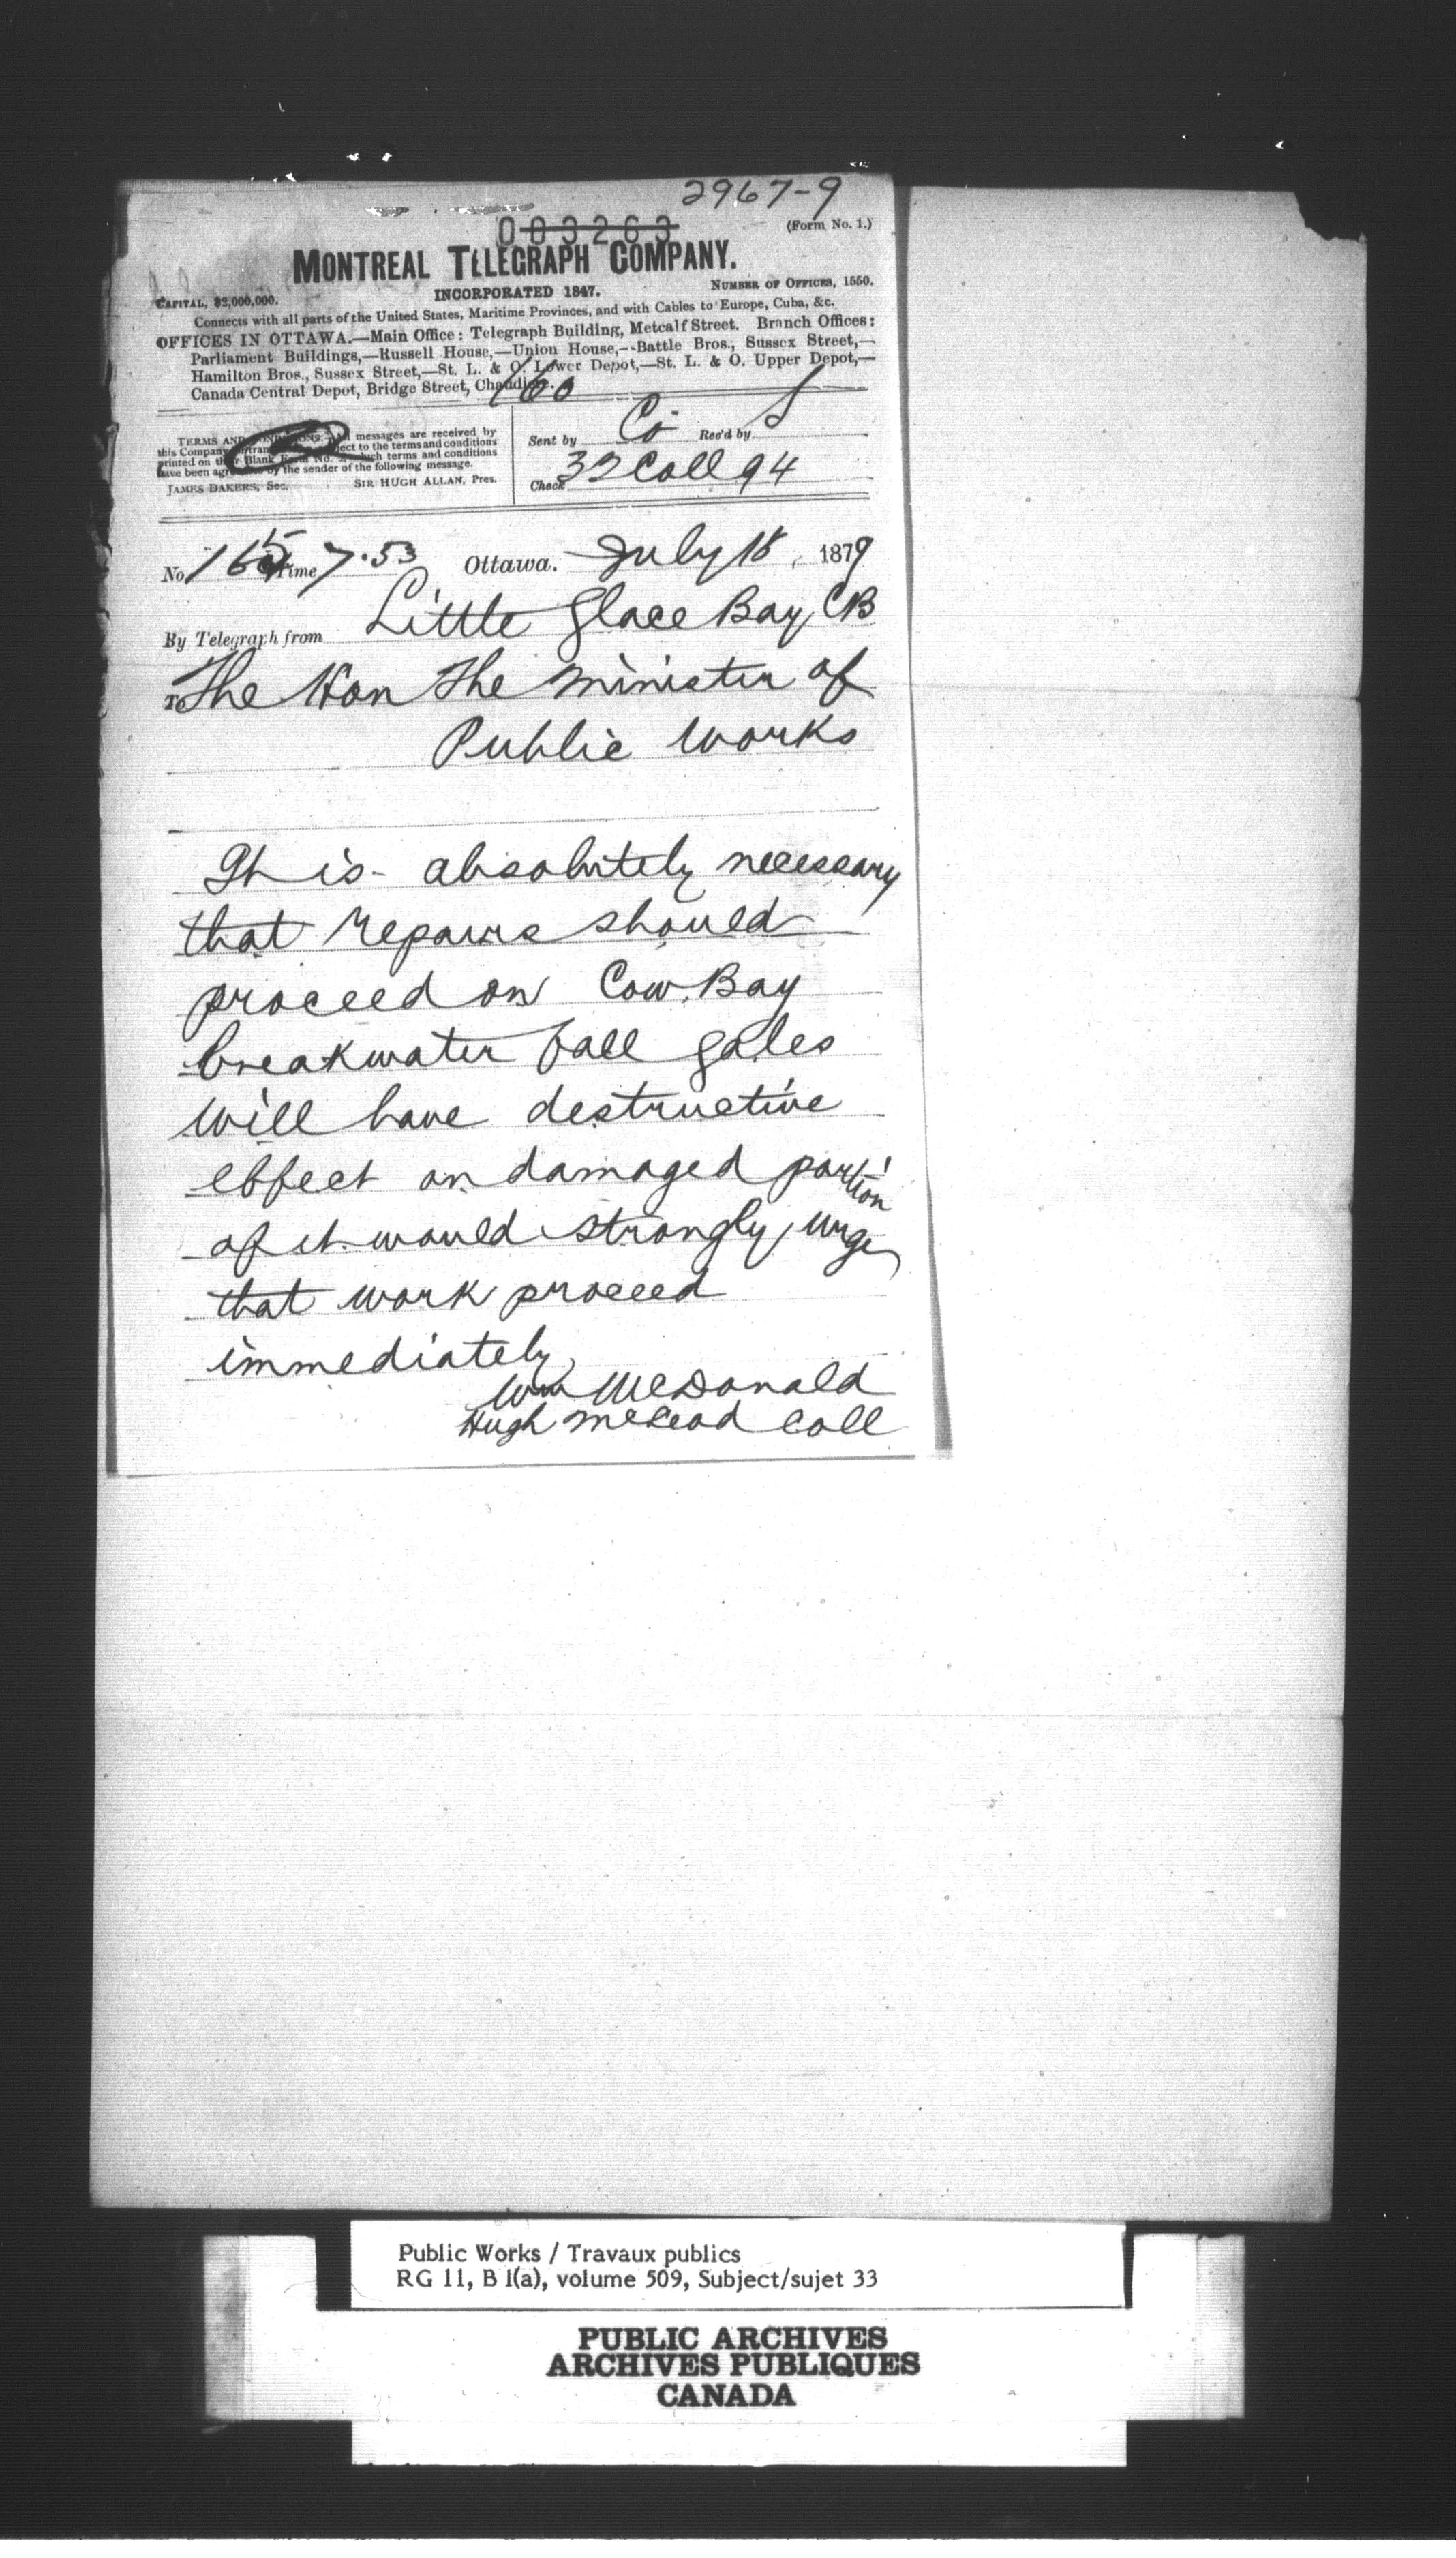 2967-9
003263
(Form No. 1.)
MONTREAL TELEGRAPH COMPANY.
INCORPORATED 1847.
CAPITAL, $2,000,000.
NUMBER OF OFFICES, 1550.
Connects with all parts of the United States, Maritime Provinces, and with Cables to Europe, Cuba, &c.
OFFICES IN OTTAWA.—Main Office: Telegraph Building, Metcalf Street. Branch Offices:
Parliament Buildings,—Russell House,—Union House,--Battle Bros., Sussex Street,—
Hamilton Bros., Sussex Street,—St. L. & O. Lower Depot,—St. L. & O. Upper Depot,—
Canada Central Depot, Bridge Street, Chaudiere.
160
TERMS AND CONDITIONS.—All messages are received by
this Company subject to the terms and conditions
printed on their Blank Form No. such terms and conditions
have been agreed to by the sender of the following message.
JAMES DAKERS, Sec. SIR HUGH ALLAN, Pres.
Sent by Co Rec'd by S
Check 32 Coll 94
No 165 Time 7.53 Ottawa. July 18, 1879
By Telegraph from Little Glace Bay CB
To The Hon The Minister of
Public Works
It is absolutely necessary
that repairs should
proceed on Cow Bay
breakwater fall gales
will have destructive
effect on damaged portion
of it would strongly urge
that work proceed
immediately
Wm McDonald
Hugh McLeod Coll
Public Works / Travaux publics
RG 11, B 1(a), volume 509, Subject/sujet 33
PUBLIC ARCHIVES
ARCHIVES PUBLIQUES
CANADA